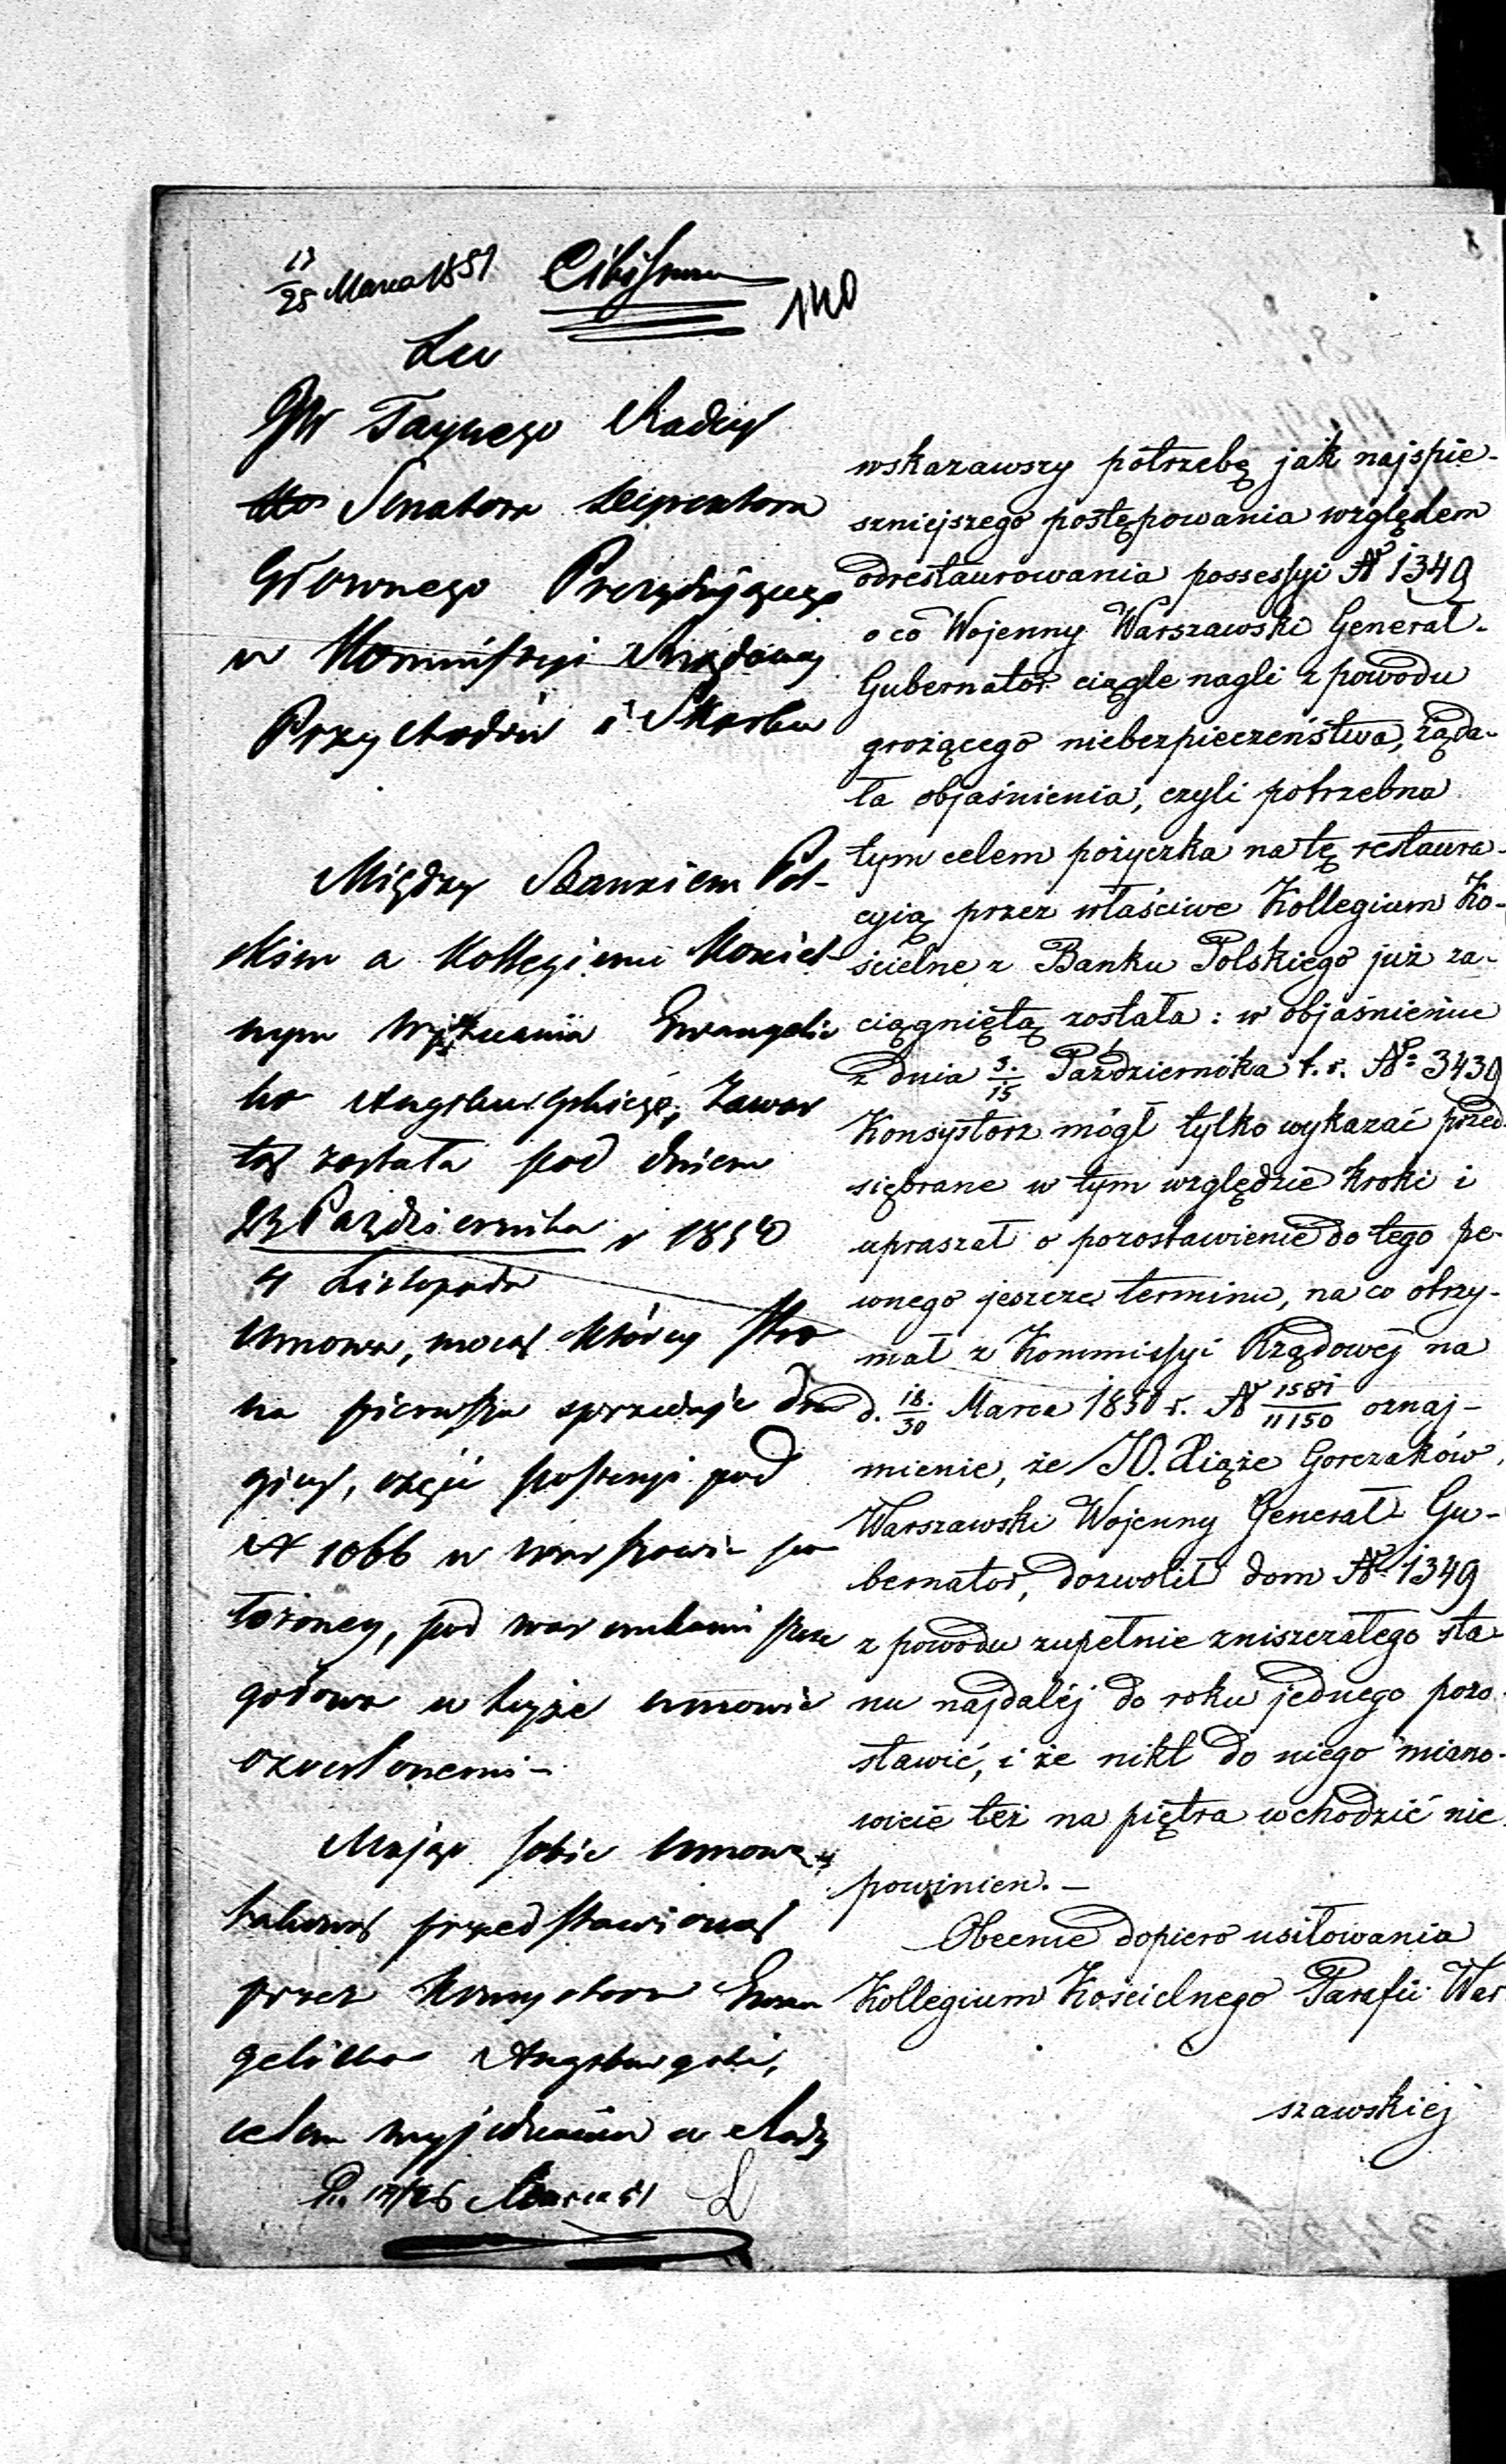 13/25 Marca 1851
140
Do
JW Taynego Radcy
Senatora Dyrektora
Głownego Prezydującego
w Kommissyi Rządowey
Przychodów i Skarbu
Między Bankiem Pol-
skim a Kollegium Kościel-
nym Wyznania Ewangelic
ko Augsburgskiego, zawar
tą została pod dniem
23 Października r 1850
4 Listopada
Umowa, mocą którey stro
na pierwsza sprzedaje dru
giey, część possessyi pod
N 1066 w Warszawie po
łożoney, pod warunkami szcze
gółowo w teyże umowie
określonemi –
Mając sobie Umowę
takową przedstawioną
przez Konsystorz Ewan
gelicko Augsburgski,
celem wyjednania u Rady
17/25 Marca 51
wskazawszy potrzebę jak najspie-
szniejszego postępowania względem
odrestaurowania possessyi № 1349
o co Wojenny Warszawski Generał-
Gubernator ciągle nagli z powodu
grożącego niebezpieczeństwa, żąda-
ła objaśnienia, czyli potrzebna
tym celem pożyczka na tę restaura-
cyią przez właściwe Kollegium Ko-
ścielne z Banku Polskiego już za-
ciągniętą została: w objaśnieniu
z dnia 3/15 Października t. r. № 3439
Konsystorz mógł tylko wykazać przed-
sięBrane w tym względzie kroki i
upraszał o pozostawienie do tego pe-
wnego jeszcze terminu, na co otrzy-
mał z Kommissyi Rządowéj na
d. 18/30 Marca 1850 r. № 1581/11150 oznaj-
mienie, że JO. Xiąże Gorczaków,
Warszawski Wojenny Generał-Gu-
bernator, dozwolił dom № 1349
z powodu zupełnie zniszczałego sta-
nu najdaléj do roku jednego pozo-
stawić, i że nikt do niego miano-
wicie też na piętra wchodzić nie
powinien. –
Obecnie dopiero usiłowania
Kollegium Kościelnego Parafii War-
szawskiej